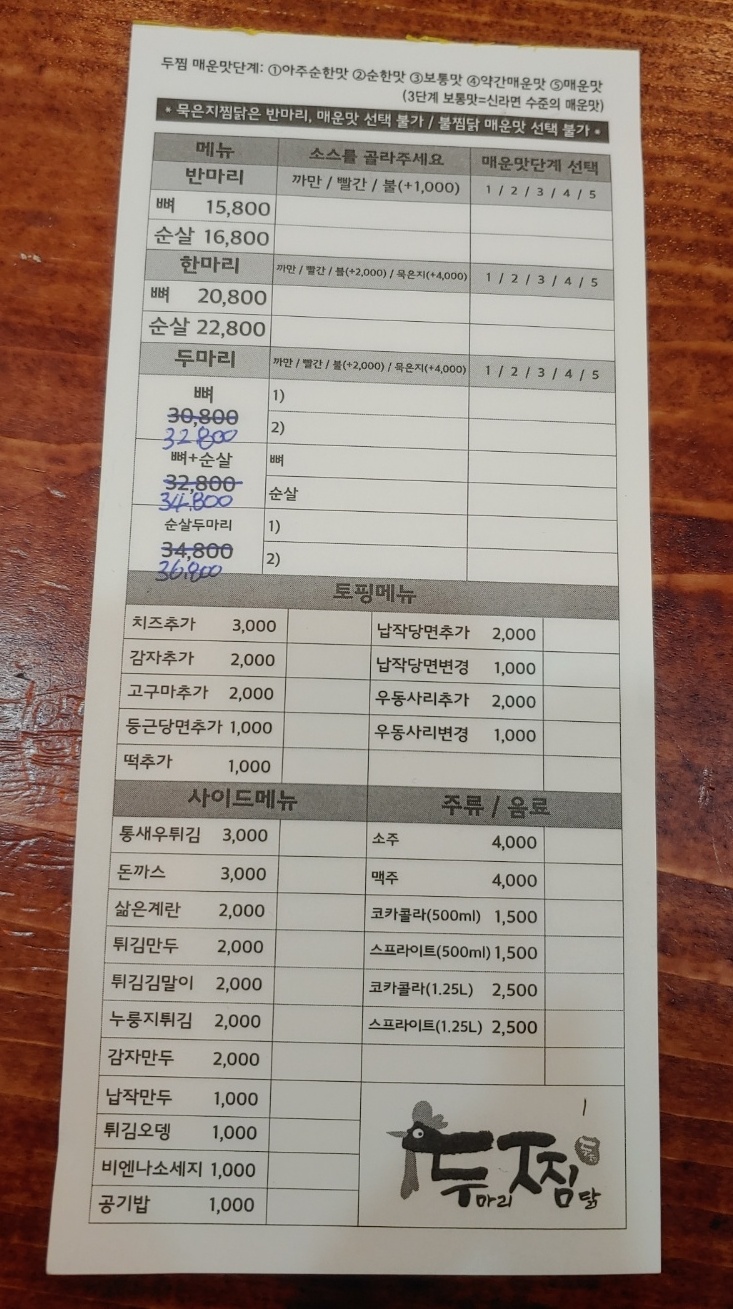 두찜 매운맛단계: ①아주순한맛 ②순한맛 ③보통맛 ④약간매운맛 ⑤매운맛
(3단계 보통맛=신라면 수준의 매운맛)
• 묵은지찜닭은 반마리, 매운맛 선택 불가 / 불찜닭 매운맛 선택 불가 •
메뉴 소스를 골라주세요 매운맛단계 선택
반마리 까만 / 빨간 / 불(+1,000) 1 / 2 / 3 / 4 / 5
뼈 15,800
순살 16,800
한마리 까만 / 빨간 / 불(+2,000) / 묵은지(+4,000) 1 / 2 / 3 / 4 / 5
뼈 20,800
순살 22,800
두마리 까만 / 빨간 / 불(+2,000) / 묵은지(+4,000) 1 / 2 / 3 / 4 / 5
뼈 1)
30,800
32,800 2)
뼈+순살 뼈
32,800
34,800 순살
순살두마리 1)
34,800
36,800 2)
토핑메뉴
치즈추가 3,000 납작당면추가 2,000
감자추가 2,000 납작당면변경 1,000
고구마추가 2,000 우동사리추가 2,000
둥근당면추가 1,000 우동사리변경 1,000
떡추가 1,000
사이드메뉴 주류 / 음료
통새우튀김 3,000 소주 4,000
돈까스 3,000 맥주 4,000
삶은계란 2,000 코카콜라(500ml) 1,500
튀김만두 2,000 스프라이트(500ml) 1,500
튀김김말이 2,000 코카콜라(1.25L) 2,500
누룽지튀김 2,000 스프라이트(1.25L) 2,500
감자만두 2,000
납작만두 1,000
튀김오뎅 1,000
비엔나소세지 1,000
공기밥 1,000
두찜
마리 닭